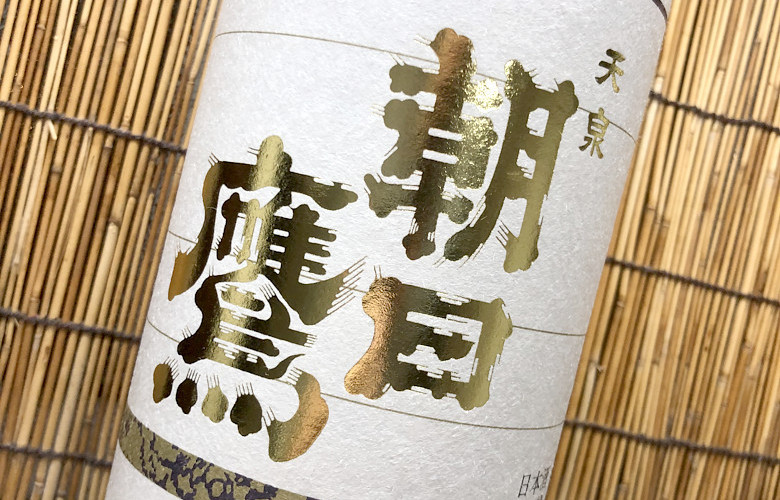 天泉
朝日
鷹
日本酒